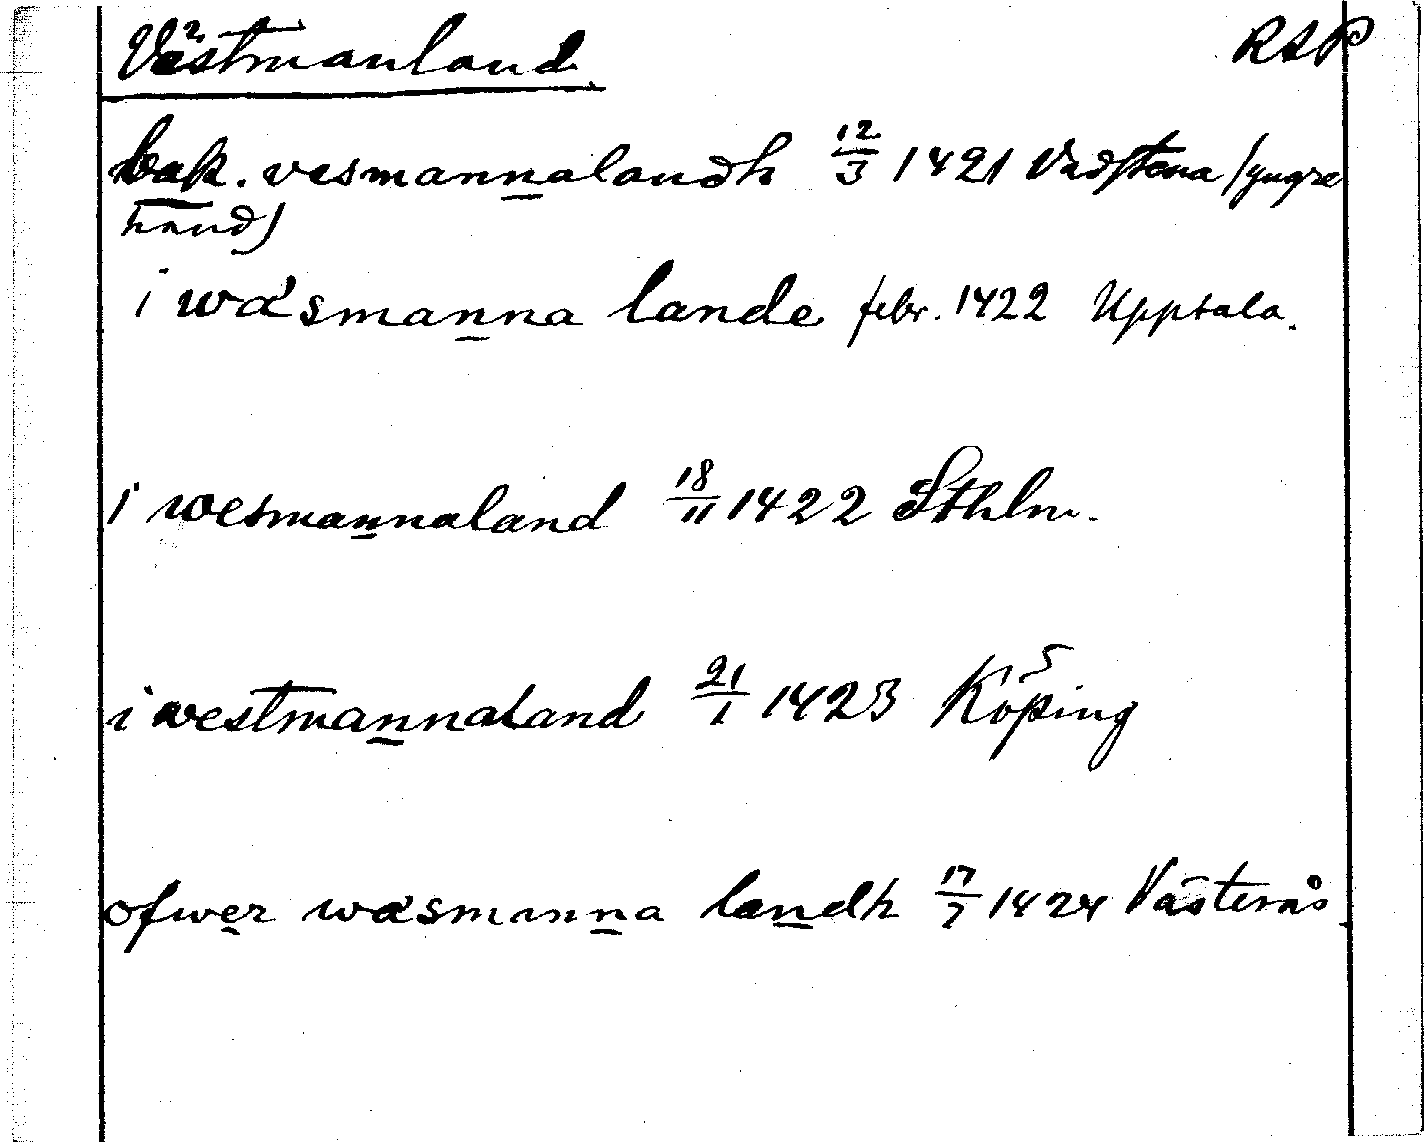 Västmanland RAP
bak. vesmannalandh 12/3 1421 Vadstena (yngre
hand)
i wäsmanna lande febr. 1422 Uppsala.
i wesmannaland 18/11 1422 Sthlm.
i westmannaland 21/1 1423 Köping
ofwer wæsmanna landh 17/7 1424 Västerås